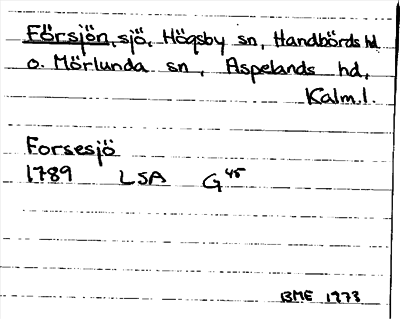 Försjön, sjö, Högsby sn, Handbörds hd
o. Mörlunda sn, Aspelands hd,
Kalm.l.
Forsesjö
1789 LSA G45
BME 1973